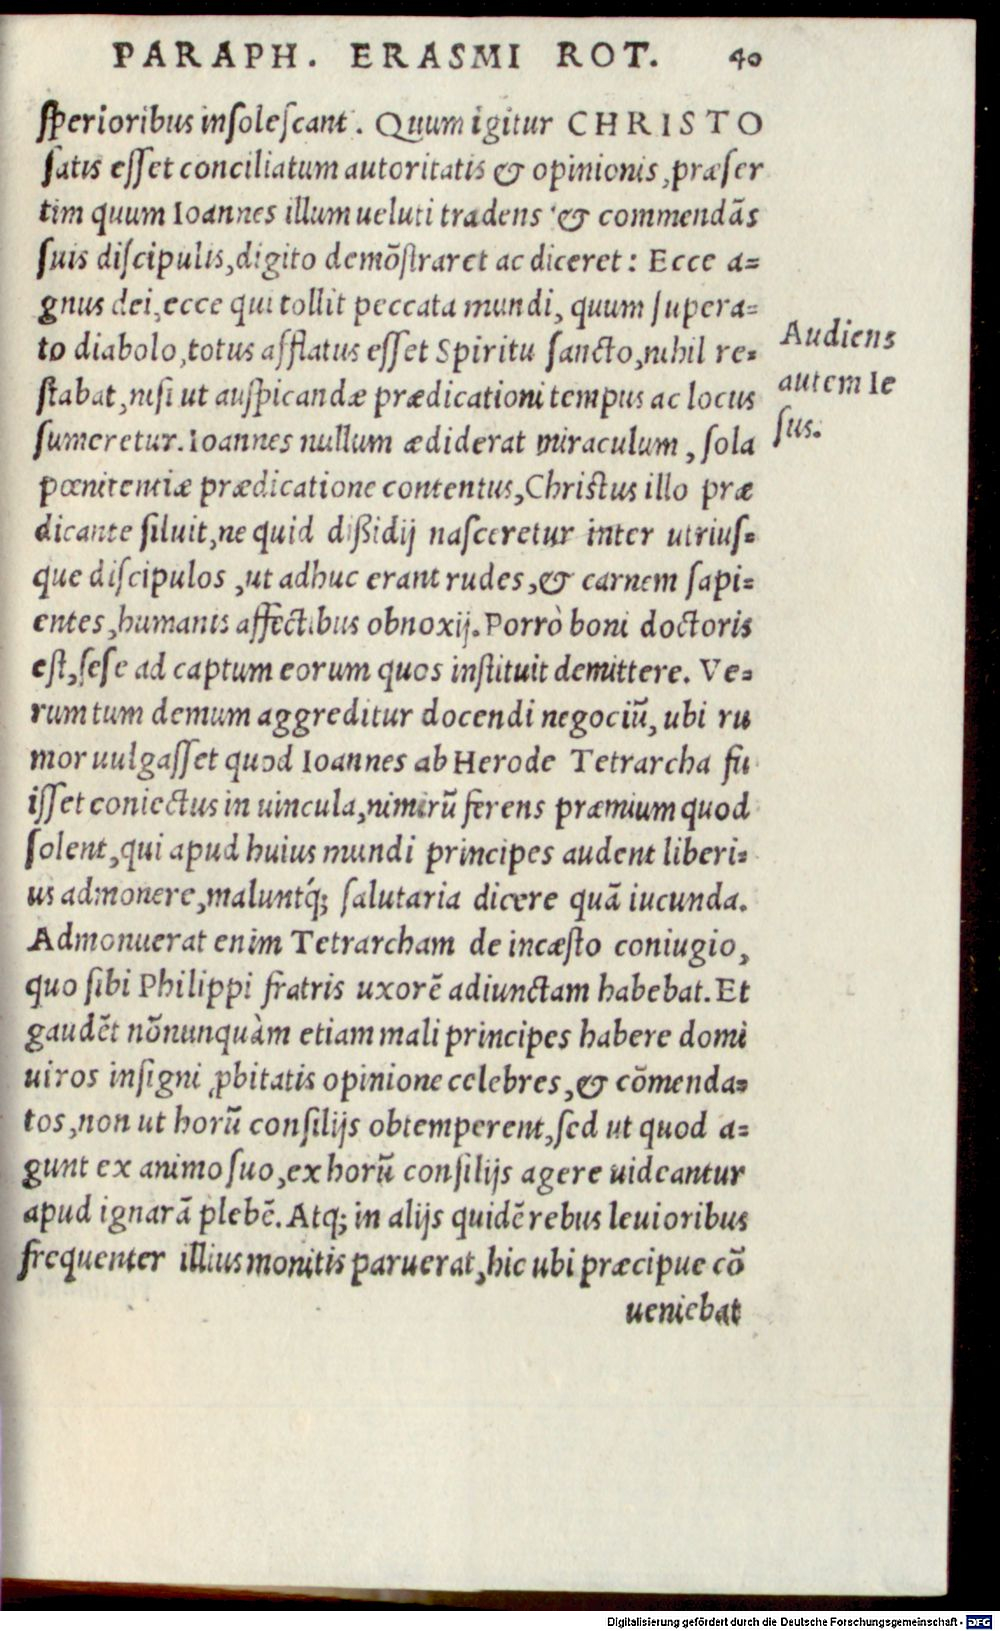 PARAPH. ERASMI ROT. 40
sperioribus insolescant. Quum igitur CHRISTO
satis esset conciliatum autoritatis & opinionis, præser
tim quum Ioannes illum ueluti tradens & commendãs
suis discipulis, digito demõstraret ac diceret: Ecce a=
gnus dei, ecce qui tollit peccata mundi, quum supera=
to diabolo, totus afflatus esset Spiritu sancto, nihil re=
stabat, nisi ut auspicandæ prædicationi tempus ac locus
sumeretur. Ioannes nullum ædiderat miraculum, sola
pœnitentiæ prædicatione contentus, Christus illo præ
dicante siluit, ne quid dißidij nasceretur inter utrius=
que discipulos, ut adhuc erant rudes, & carnem sapi=
entes, humanis affectibus obnoxij. Porrò boni doctoris
est, sese ad captum eorum quos instituit demittere. Ve=
rum tum demum aggreditur docendi negociũ, ubi ru
mor uulgasset quod Ioannes ab Herode Tetrarcha fu
isset coniectus in uincula, nimirũ ferens præmium quod
solent, qui apud huius mundi principes audent liberi=
us admonere, maluntq́; salutaria dicere quã iucunda.
Admonuerat enim Tetrarcham de incæsto coniugio,
quo sibi Philippi fratris uxorẽ adiunctam habebat. Et
gaudẽt nõnunquàm etiam mali principes habere domi
uiros insigni ꝓbitatis opinione celebres, & cõmenda=
tos, non ut horũ consilijs obtemperent, sed ut quod a=
gunt ex animo suo, ex horũ consilijs agere uideantur
apud ignarã plebẽ. Atq; in alijs quidẽ rebus leuioribus
frequenter illius monitis paruerat, hic ubi præcipue cõ
ueniebat
Audiens
autem Ie
sus.
Digitalisierung gefördert durch die Deutsche Forschungsgemeinschaft - DFG